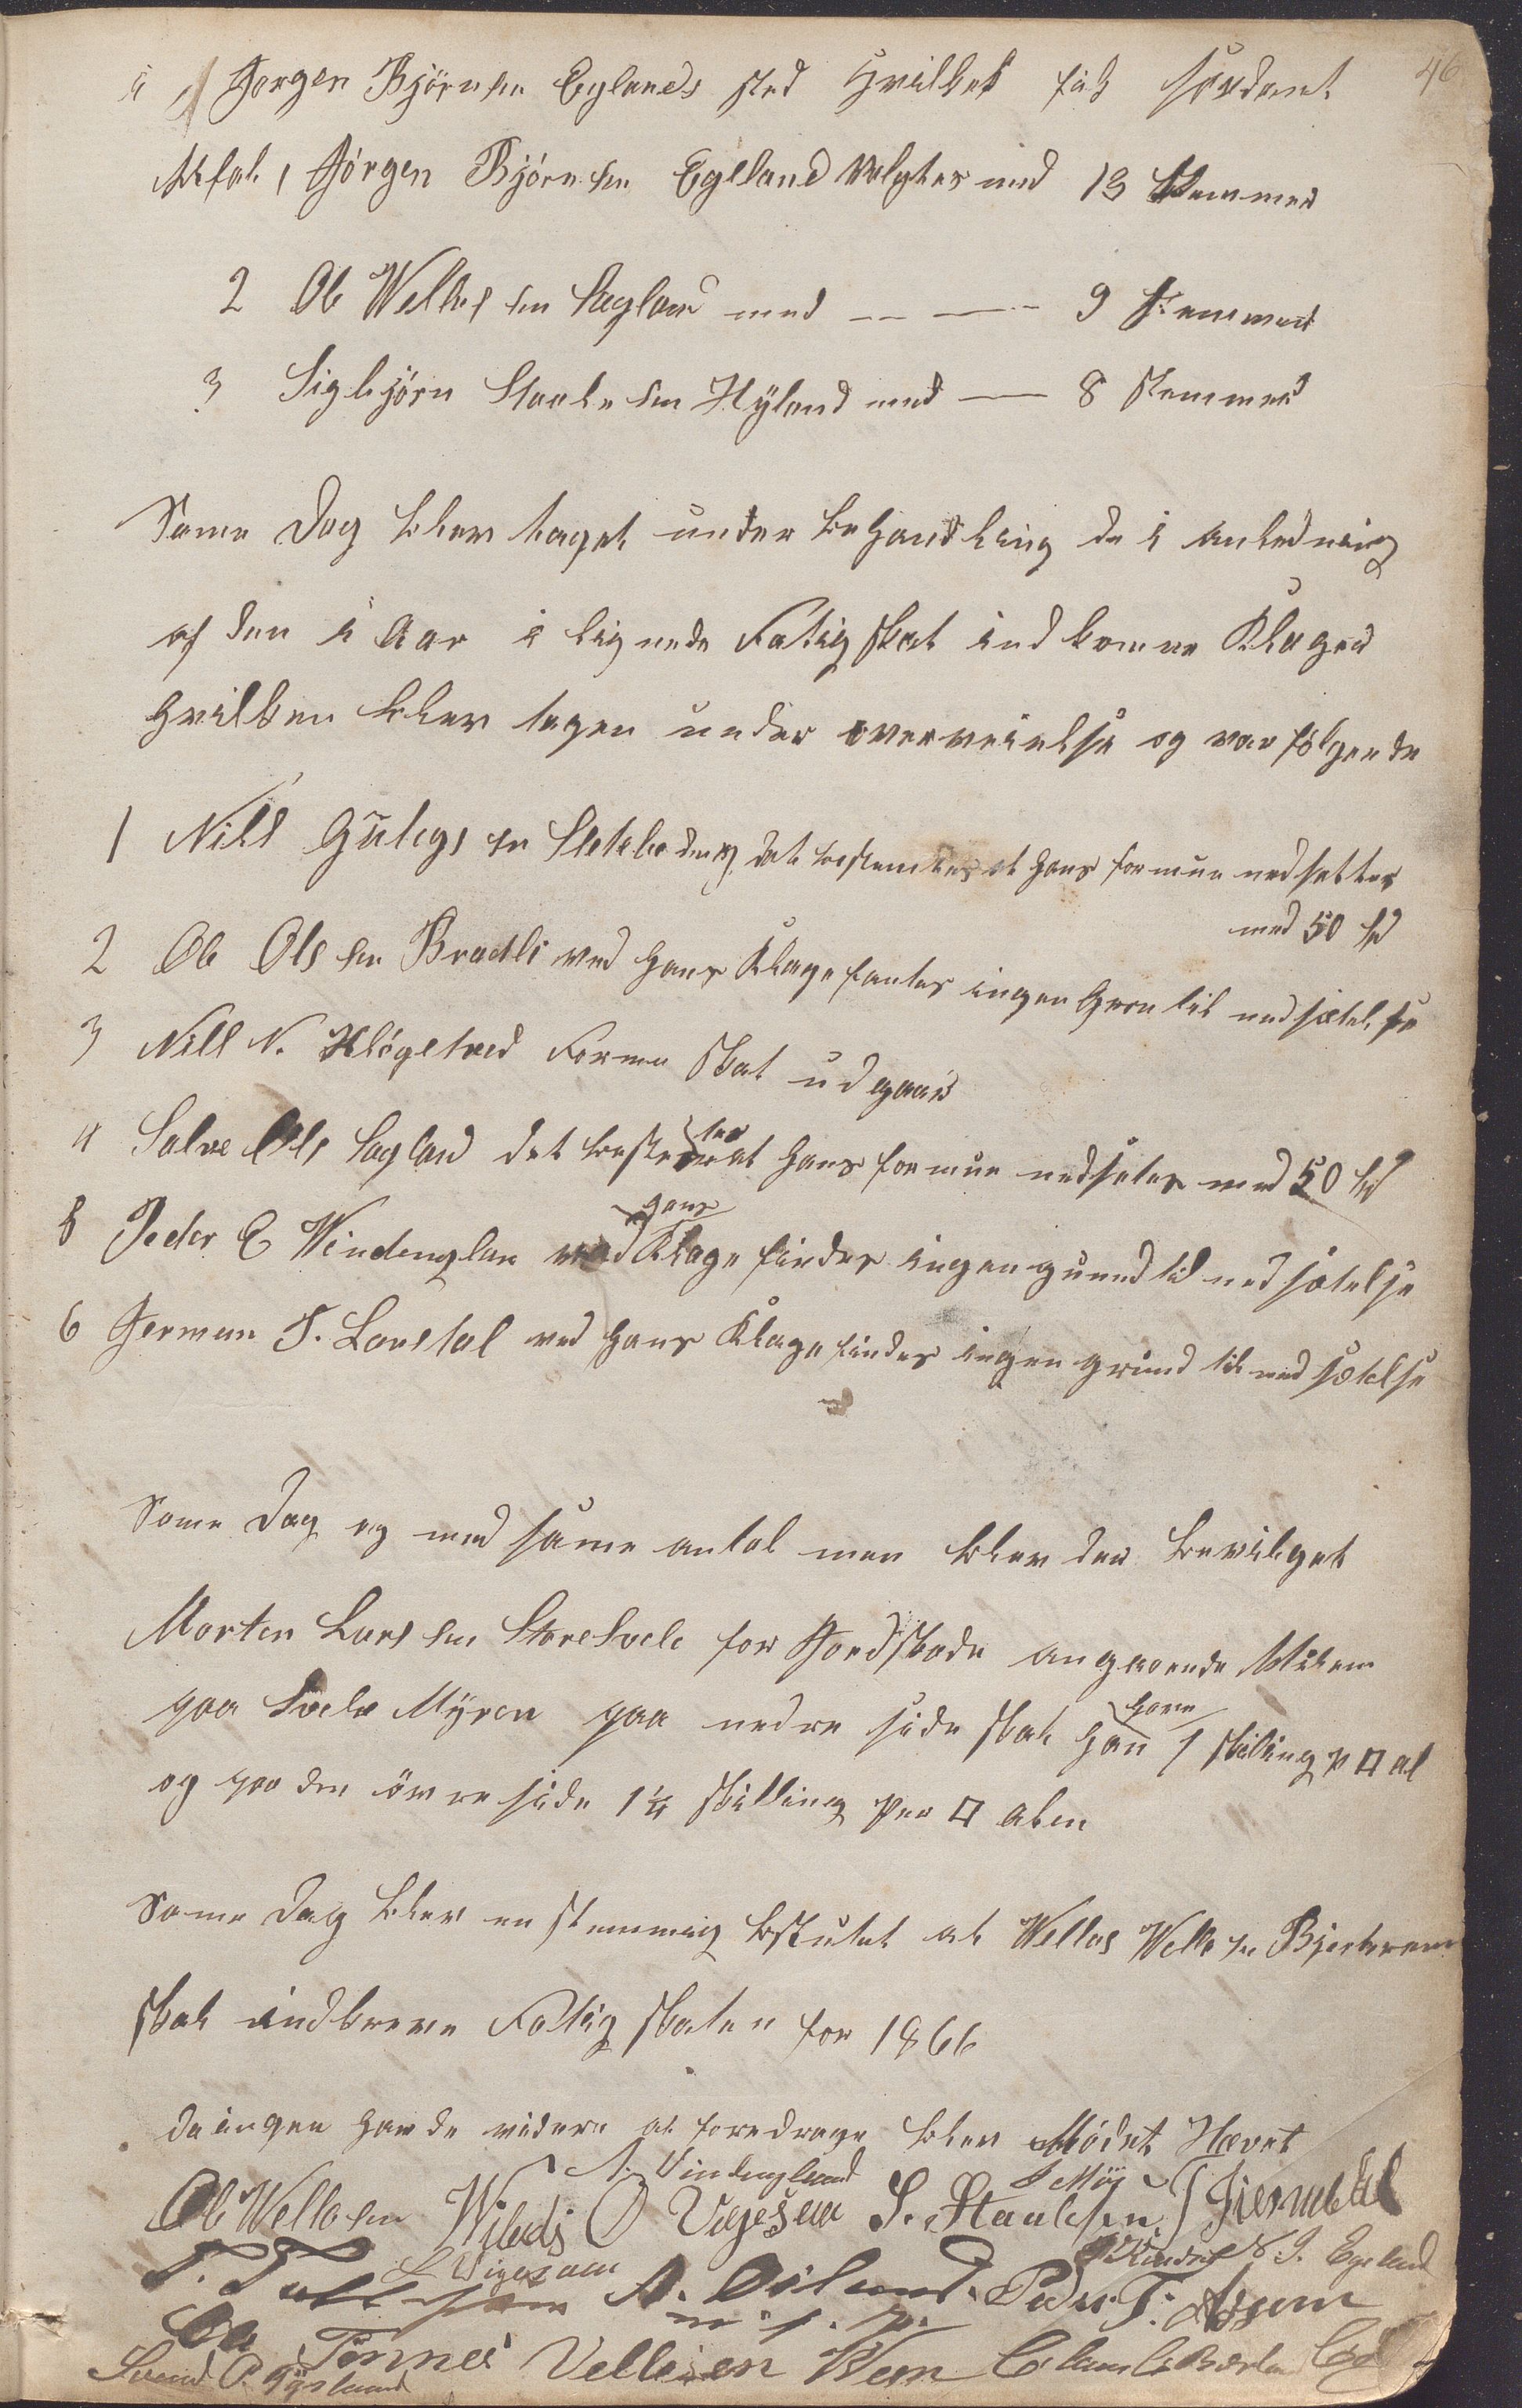 46
i Jørgen Bjørnsen Eglands sted Hvilket fik saadant
Utfal, Jörgen Bjørnsen Eglland valgtes med 13 Stemmer
2 Ole Wellassen Sagland med — — 9 Stemmer
3 Sigbjørn Staalesen Hÿland med — 8 Stemmer
Same Dag blev taget under behandling de i anledning
af den i Aar i lignede Fatigskat indkomne Klager
hvilken blev tagen under overveielse og var følgende
1 Nils Gulegsen Sletebø det bestemtes at hans formue nedsettes
med 50 Sp
2 Ole Olssen Bradli ved hans Klage fantes ingen Gron til nedsættelse
3 Nill N. Høgetved Forme Skat udgaar
4 Salve Ols Sagland det bestemtes at hans formue nedsettes med 50 Sp
5 Peder E Windenglan ved hans Klage findes ingen grund til nedsættelse
6 German T. Lonstal ved hans Klage findes ingen grund til nedsættelse
Same Dag og med same antal men blev der bevilget
Morten Larssen Storesvele for Jordskade angaaende Milem
paa Svele Mÿren paa nedre side skal han have 1 skiling p □ al
og paa den øvre side 1¼ skilling per □ alen
Same Dag blev enstemmig besluttet at Wellas Wellesen Bjerkrem
skal indkreve Fatigskaten for 1866
da ingen havde videre at foredrage blev Mødet Hævet
A. Vindengland S Møÿ
Ole Wellasen O Vegesaa S. Staalesen
L Vigesaa N. J. Egeland
T. Tallefsen A. Östand Peder T.
m. f. P.
Ole Tønnes Vellesen
Svend P. Gÿsland